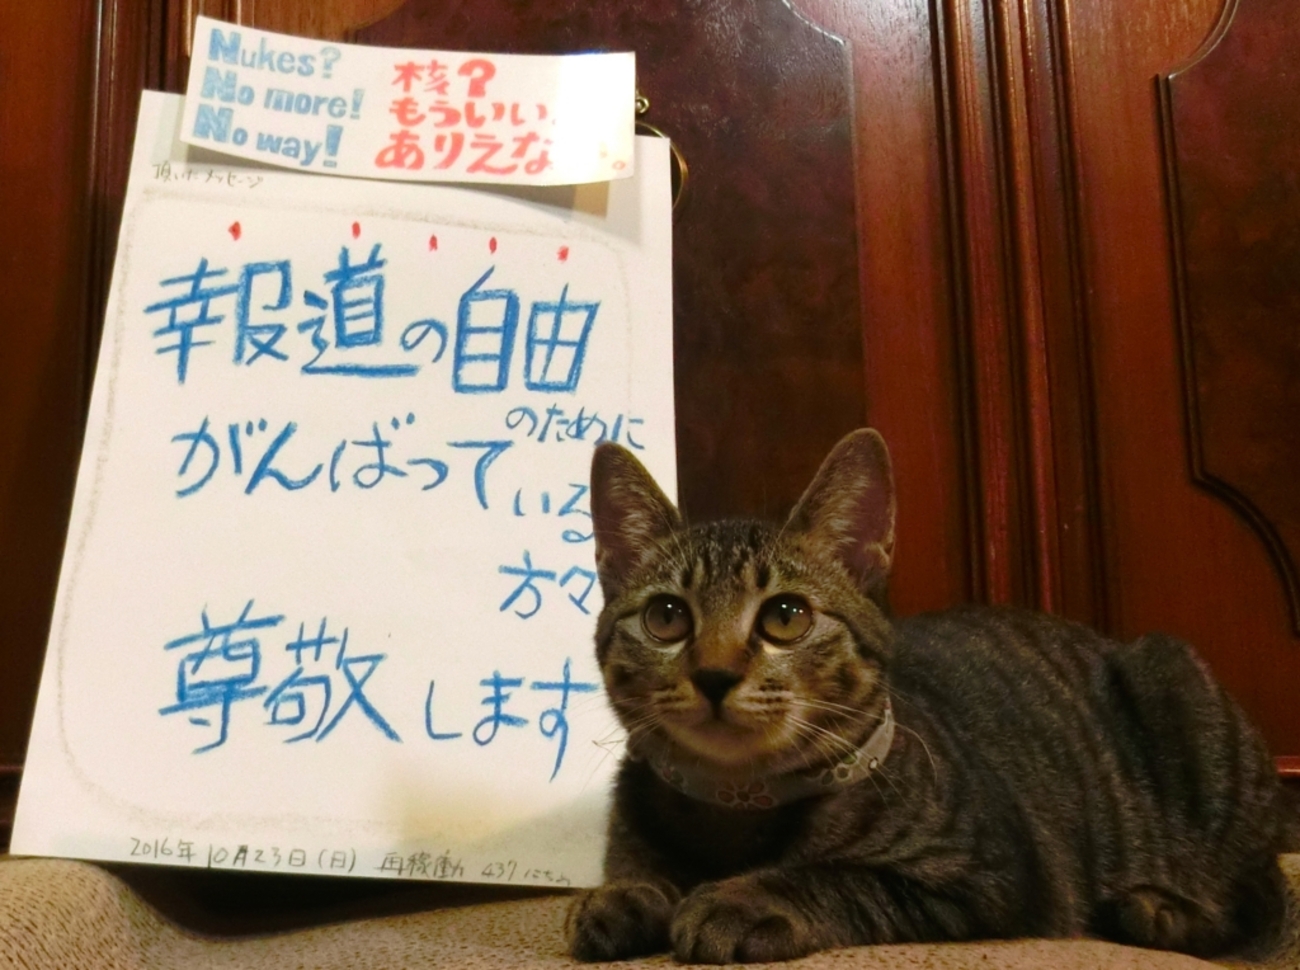 Nukes?
No more!
No way!
核?
もういい
ありえな
頂いたメッセージ
報道の自由
のために
がんばって
いる
方々
尊敬します
2016年10月23日(日) 再稼働 437にちめ